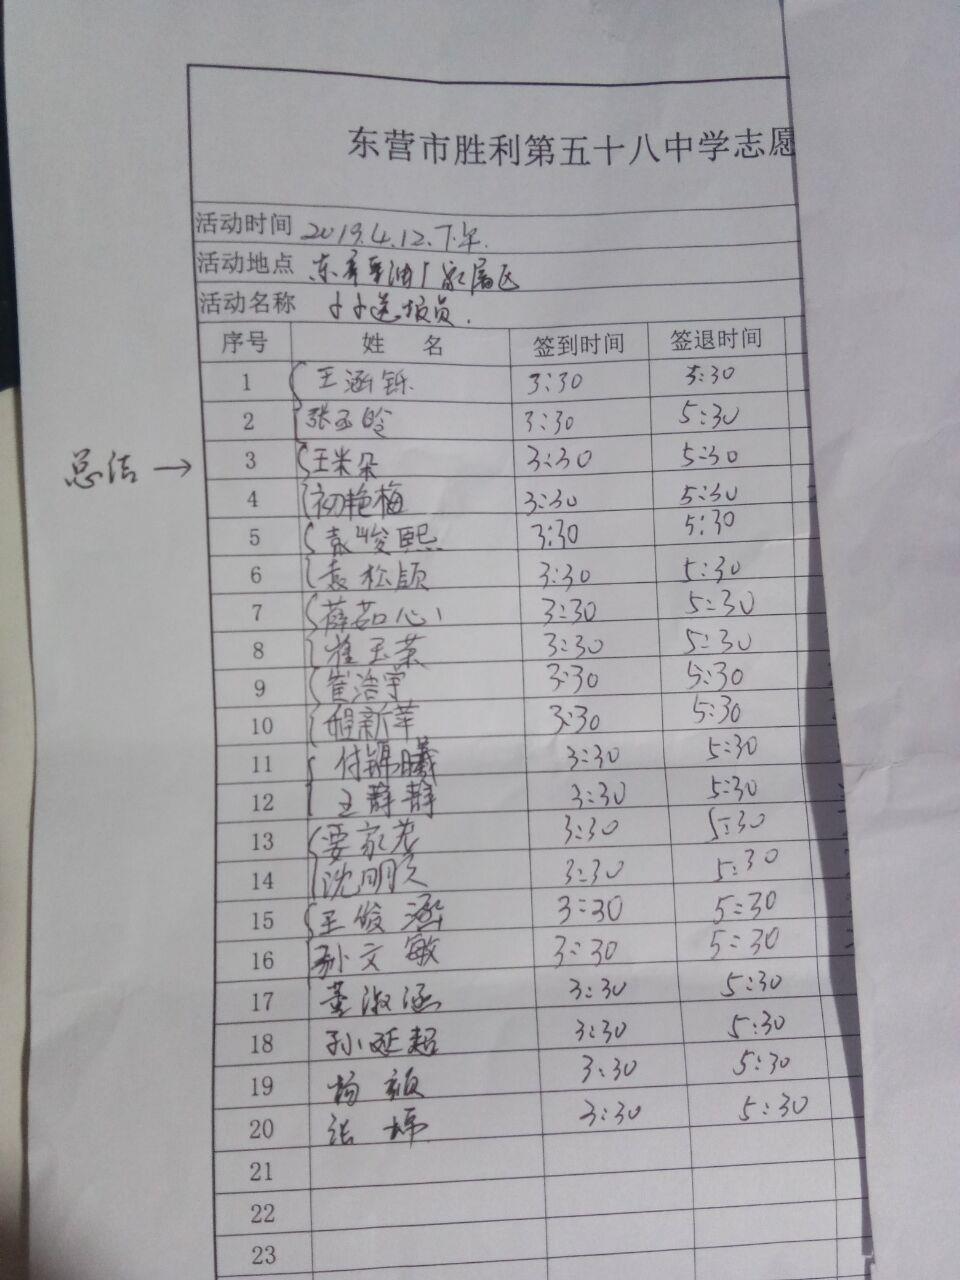 东营市胜利第五十八中学志愿
活动时间 2019.4.12.下午.
活动地点 东辛采油厂家属区
活动名称 小小送报员.
序号 姓 名 签到时间 签退时间
1 王涵铄 3:30 5:30
2 张玉昤 3:30 5:30
总结→ 3 王米朵 3:30 5:30
4 初艳梅 3:30 5:30
5 袁峻熙 3:30 5:30
6 袁松颀 3:30 5:30
7 薛茹心 3:30 5:30
8 崔玉荣 3:30 5:30
9 崔浩宇 3:30 5:30
10 新苹 3:30 5:30
11 付锦曦 3:30 5:30
12 王静静 3:30 5:30
13 家 3:30 5:30
14 沈明 3:30 5:30
15 王俊涵 3:30 5:30
16 孙文敏 3:30 5:30
17 董淑涵 3:30 5:30
18 孙延超 3:30 5:30
19 杨 3:30 5:30
20 张 3:30 5:30
21
22
23